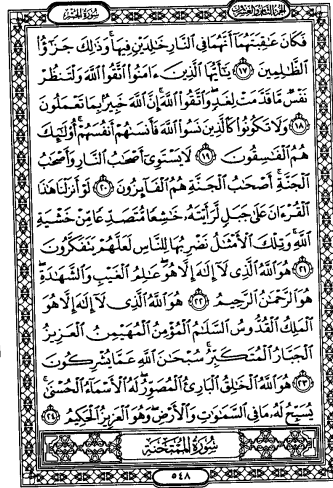 سُورَةُ الحَشْرِ
الجزء الثامن والعشرون
فَكَانَ عَاقِبَتَهُمَا أَنَّهُمَا فِي النَّارِ خَالِدَيْنِ فِيهَا وَذَلِكَ جَزَٰٓؤُا۟
الظَّالِمِينَ ١٧ يَا أَيُّهَا الَّذِينَ ءَامَنُوا اتَّقُوا اللَّهَ وَلْتَنظُرْ
نَفْسٌ مَّا قَدَّمَتْ لِغَدٍ وَاتَّقُوا اللَّهَ إِنَّ اللَّهَ خَبِيرٌ بِمَا تَعْمَلُونَ
١٨ وَلَا تَكُونُوا كَالَّذِينَ نَسُوا اللَّهَ فَأَنسَاهُمْ أَنفُسَهُمْ أُولَٰئِكَ
هُمُ الْفَاسِقُونَ ١٩ لَا يَسْتَوِي أَصْحَابُ النَّارِ وَأَصْحَابُ
الْجَنَّةِ أَصْحَابُ الْجَنَّةِ هُمُ الْفَائِزُونَ ٢٠ لَوْ أَنزَلْنَا هَٰذَا
الْقُرْءَانَ عَلَىٰ جَبَلٍ لَّرَأَيْتَهُ خَاشِعًا مُّتَصَدِّعًا مِّنْ خَشْيَةِ
اللَّهِ وَتِلْكَ الْأَمْثَالُ نَضْرِبُهَا لِلنَّاسِ لَعَلَّهُمْ يَتَفَكَّرُونَ
٢١ هُوَ اللَّهُ الَّذِي لَا إِلَٰهَ إِلَّا هُوَ عَالِمُ الْغَيْبِ وَالشَّهَادَةِ
هُوَ الرَّحْمَٰنُ الرَّحِيمُ ٢٢ هُوَ اللَّهُ الَّذِي لَا إِلَٰهَ إِلَّا هُوَ
الْمَلِكُ الْقُدُّوسُ السَّلَامُ الْمُؤْمِنُ الْمُهَيْمِنُ الْعَزِيزُ
الْجَبَّارُ الْمُتَكَبِّرُ سُبْحَانَ اللَّهِ عَمَّا يُشْرِكُونَ
٢٣ هُوَ اللَّهُ الْخَالِقُ الْبَارِئُ الْمُصَوِّرُ لَهُ الْأَسْمَاءُ الْحُسْنَىٰ
يُسَبِّحُ لَهُ مَا فِي السَّمَاوَاتِ وَالْأَرْضِ وَهُوَ الْعَزِيزُ الْحَكِيمُ ٢٤
سُورَةُ المُمْتَحنَةِ
٥٤٨